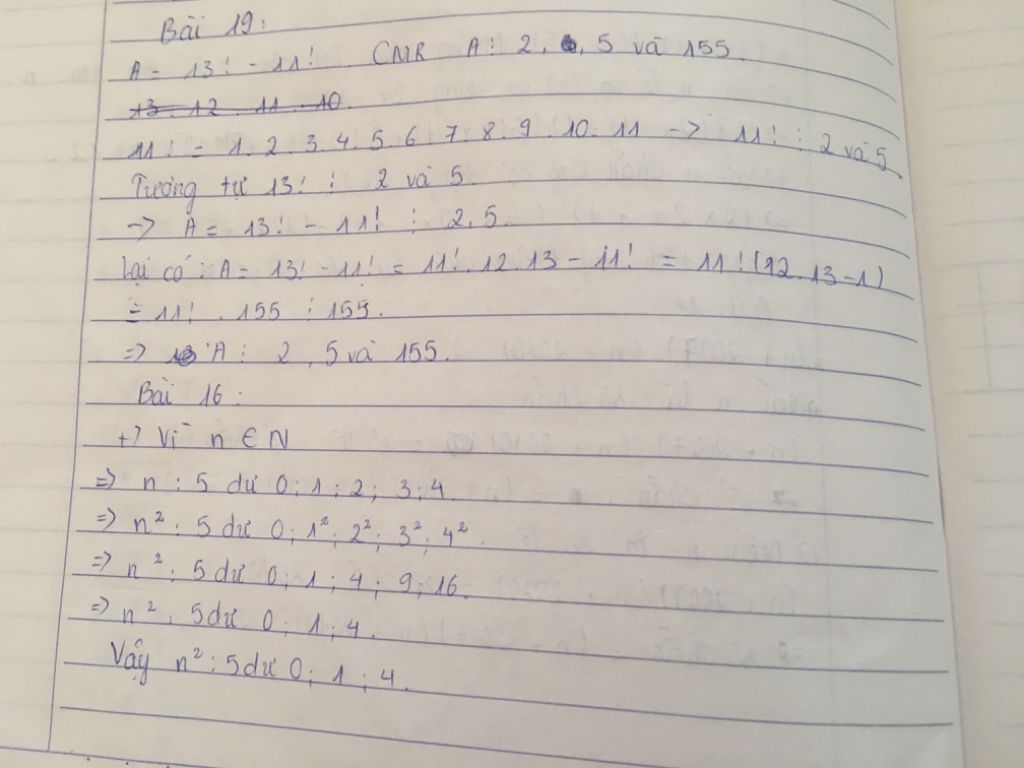 Bài 19:
A = 13! - 11! CMR A ⋮ 2, 5 và 155.
13 . 12 . 11 . 10.
11! = 1. 2. 3. 4. 5. 6. 7. 8. 9. 10. 11 -> 11! ⋮ 2 và 5.
Tương tự 13! ⋮ 2 và 5.
-> A = 13! - 11! ⋮ 2, 5.
Lại có: A = 13! - 11! = 11!. 12. 13 - 11! = 11! (12. 13 - 1)
= 11! . 155 ⋮ 155.
=> A ⋮ 2, 5 và 155.
Bài 16:
+) Vì n ∈ N
=> n : 5 dư 0; 1; 2; 3; 4.
=> n² : 5 dư 0; 1²; 2²; 3²; 4².
=> n² : 5 dư 0; 1; 4; 9; 16.
=> n² : 5 dư 0; 1; 4.
Vậy n² : 5 dư 0; 1; 4.